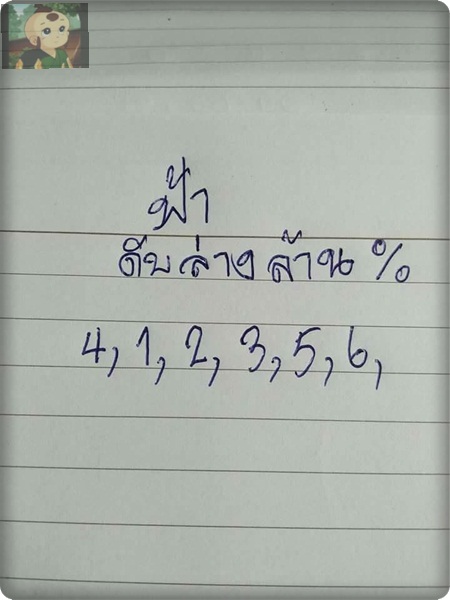 ฟ้า
ดับล่างล้าน %
4, 1, 2, 3, 5, 6,